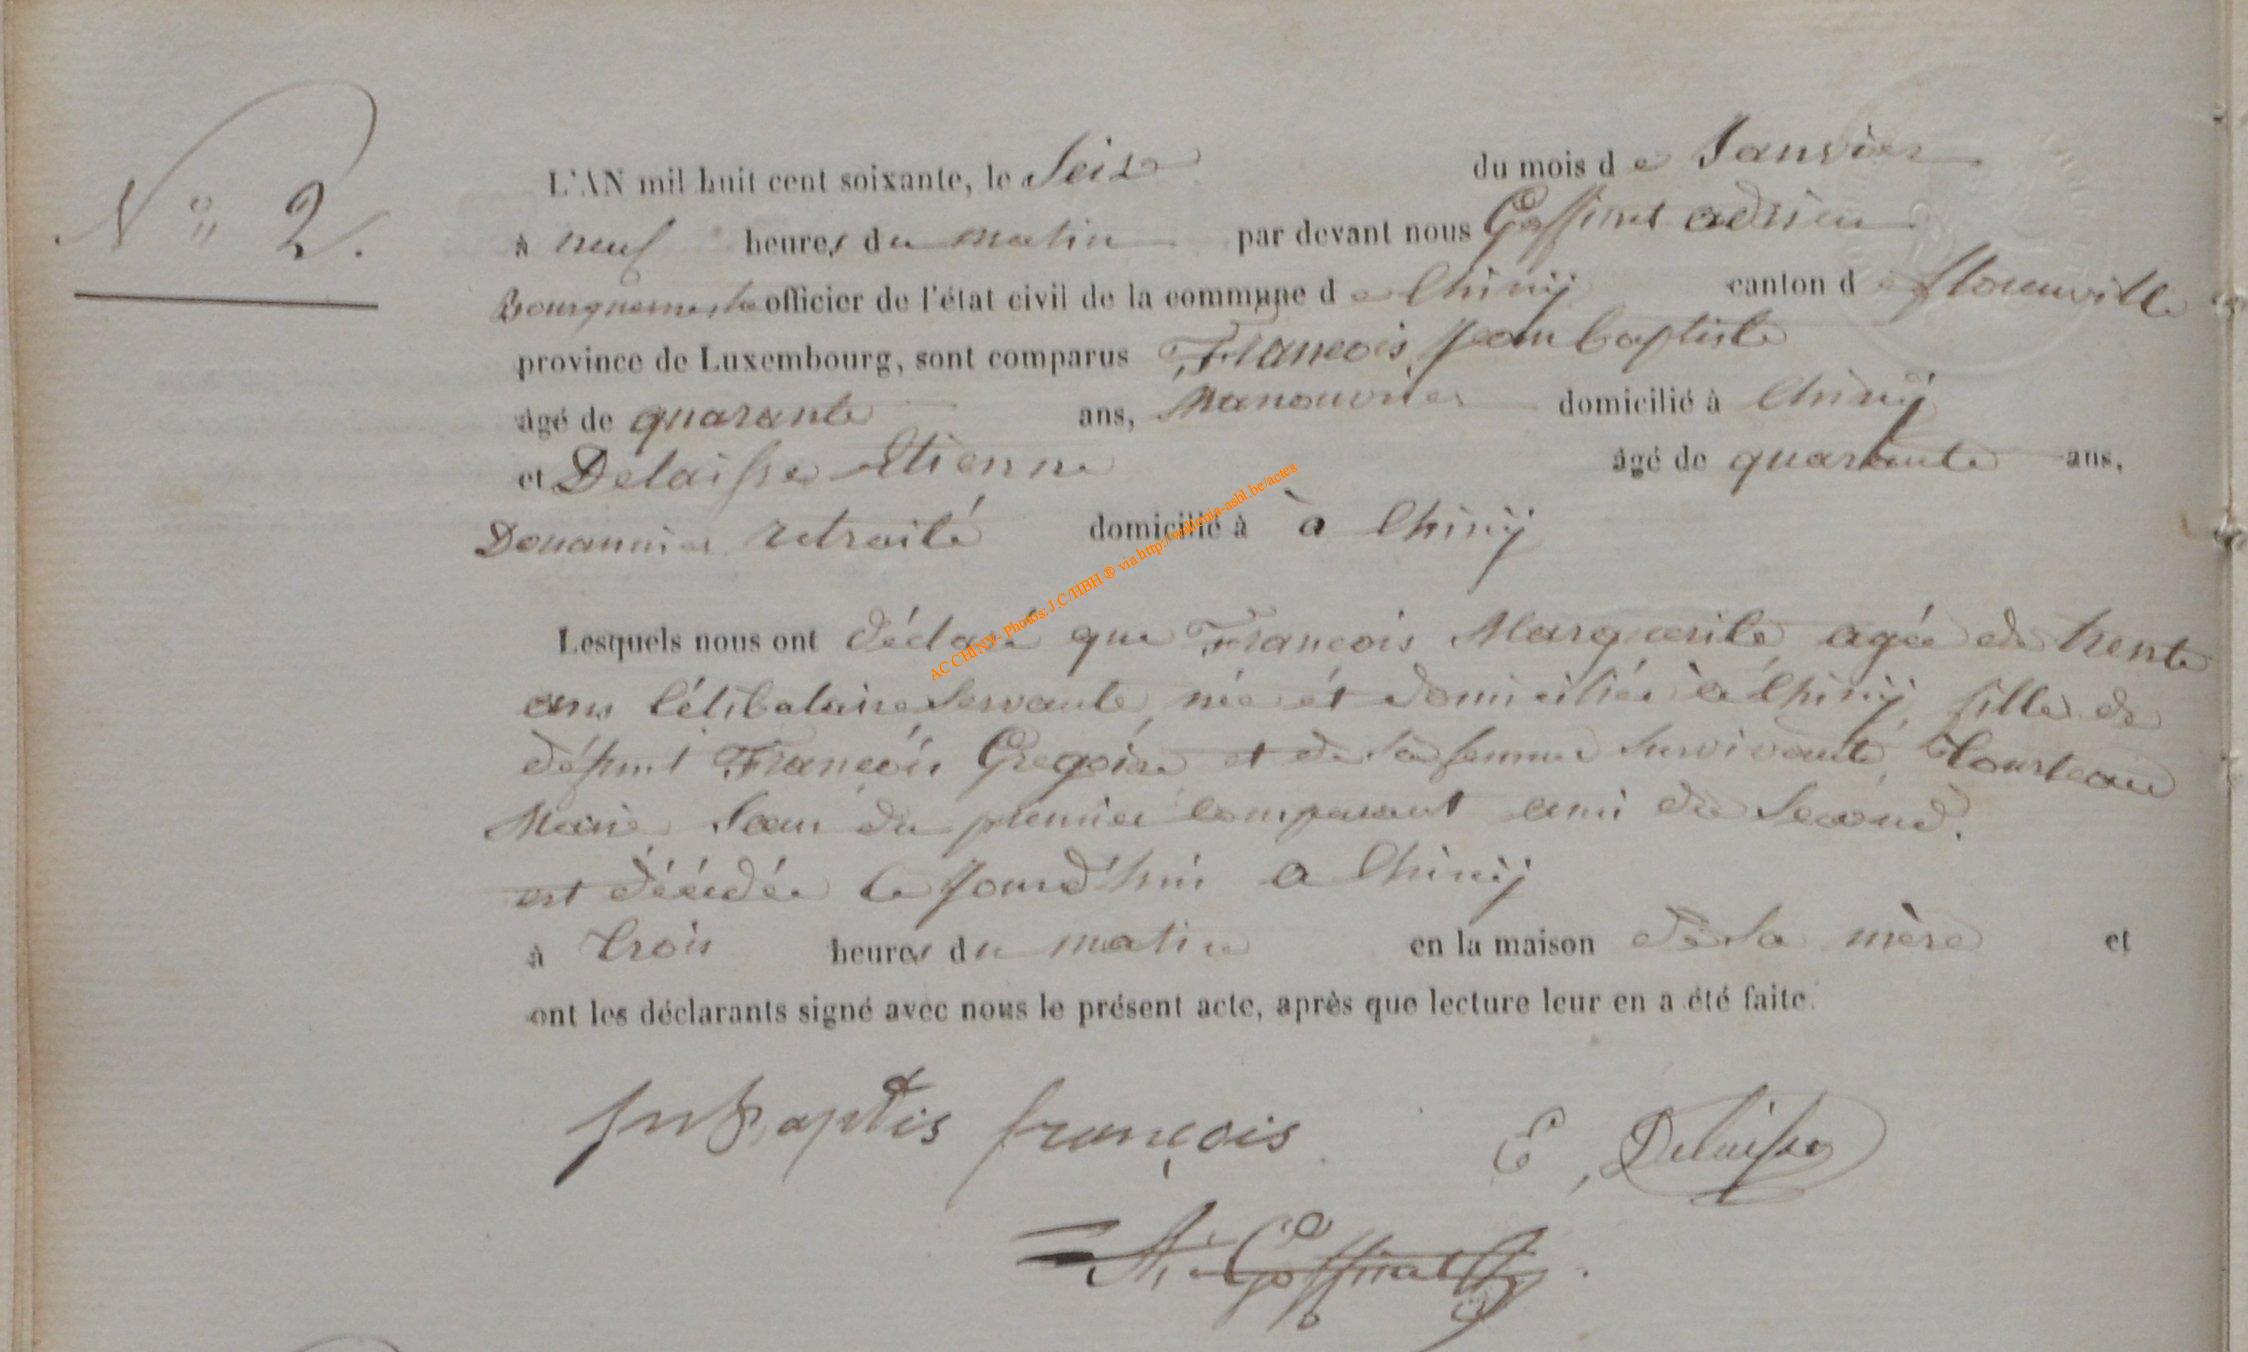 N° 2.
L'AN mil huit cent soixante, le Seize du mois de Janvier
à neuf heures du matin par devant nous Goffinet adrien
Bourguemestre officier de l'état civil de la commune de Chiny canton de florenville
province de Luxembourg, sont comparus François, Jean baptiste
âgé de quarante ans, Manouvrier domicilié à Chiny
et Delaisse Etienne âgé de quarante ans,
Douannier retraité domicilié à à Chiny
AC CHINY - Photos: J.C/HBH ® via http://wallonia-asbl.be/actes
Lesquels nous ont déclaré que François Marguerite agée de trente
ans Célibataire Servante, née et domiciliée à Chiny, fille de
défunt François Gregoire et de sa femme survivante,
Marie, Sœur du premier comparant ami du Second.
est décédée ce jourd'hui a Chiny
à trois heures du matin en la maison de la mère et
ont les déclarants signé avec nous le présent acte, après que lecture leur en a été faite.
Jn Baptis françois E, Delaisse
A. Goffinet